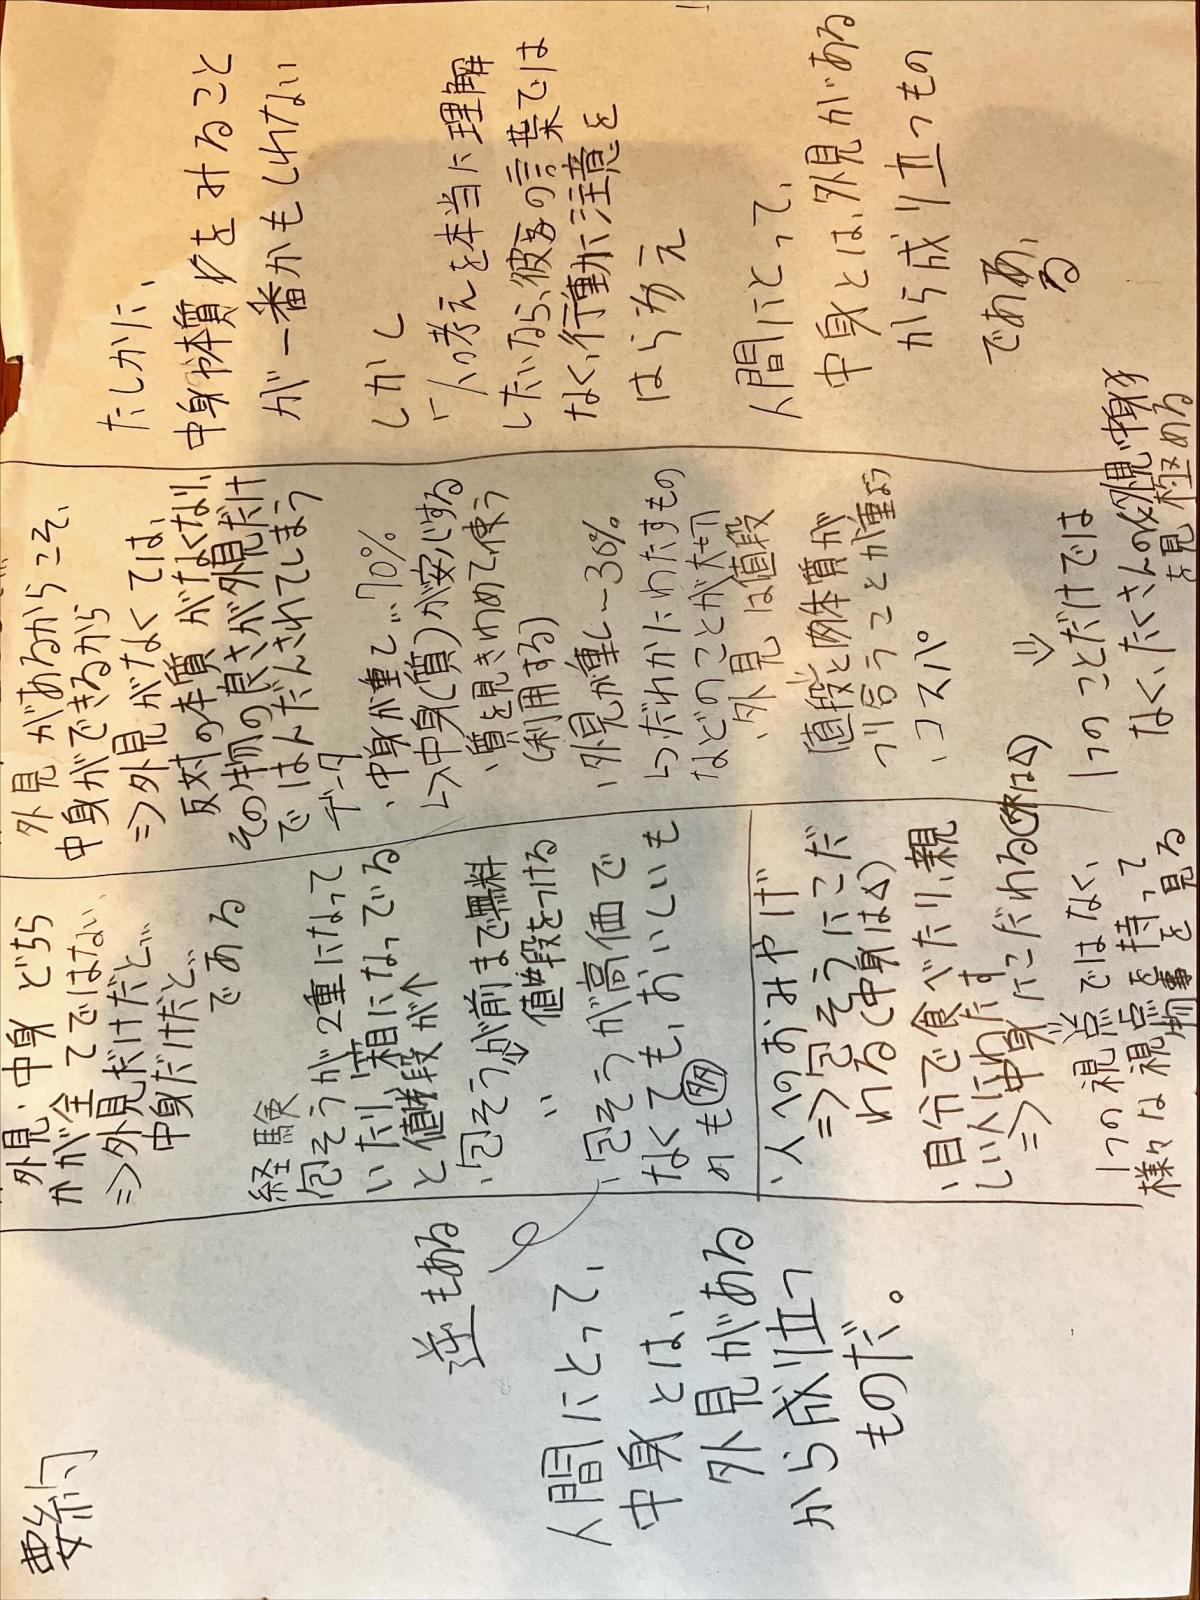 要約
人間にとって、
中身とは、
外見がある
から成り立つ
ものだ。
逆もある
外見・中身 どちら
かが全てではない、
⇒外見だけだと…
中身だけだと…
である
経験
包そうが2重になって
いたり、箱になってでる
と値段が↑
・包そうが前まで無料
⇓
〃 値段をつける
・包そうが高価で
なくても、おいしいも
のも多
・人へのおみやげ
⇒包そうにこだ
われる(中身は△)
・自分で食べたり、親
しい人にわたす
⇒中身にこだわる(外は△)
⇓
1つの視点ではなく、
様々な視点を持って
物事を見る
外見があるからこそ、
中身ができるから
⇒外見がなくては、
反対の本質がなくなり、
その物の良さが外見だけ
ではんだんされてしまう
データ
・中身が重し…70%
↳中身(質)が安心する
・質を見きわめて使う
(利用する)
・外見が重し〜30%
↳だれかにわたすもの
などのことが大切
・外見は値段
値段と肉体質が
つり合うことが重よう
・コスパ
⇓
1つのことだけでは
なく、たくさんの外見や中身
を見極める
たしかに、
中身や本質をみること
が一番かもしれない
しかし
「人の考えを本当に理解
したいなら、彼らの言葉では
なく、行動に注意を
はらがえ
人間にとって、
中身とは、外見がある
から成り立つもの
である、